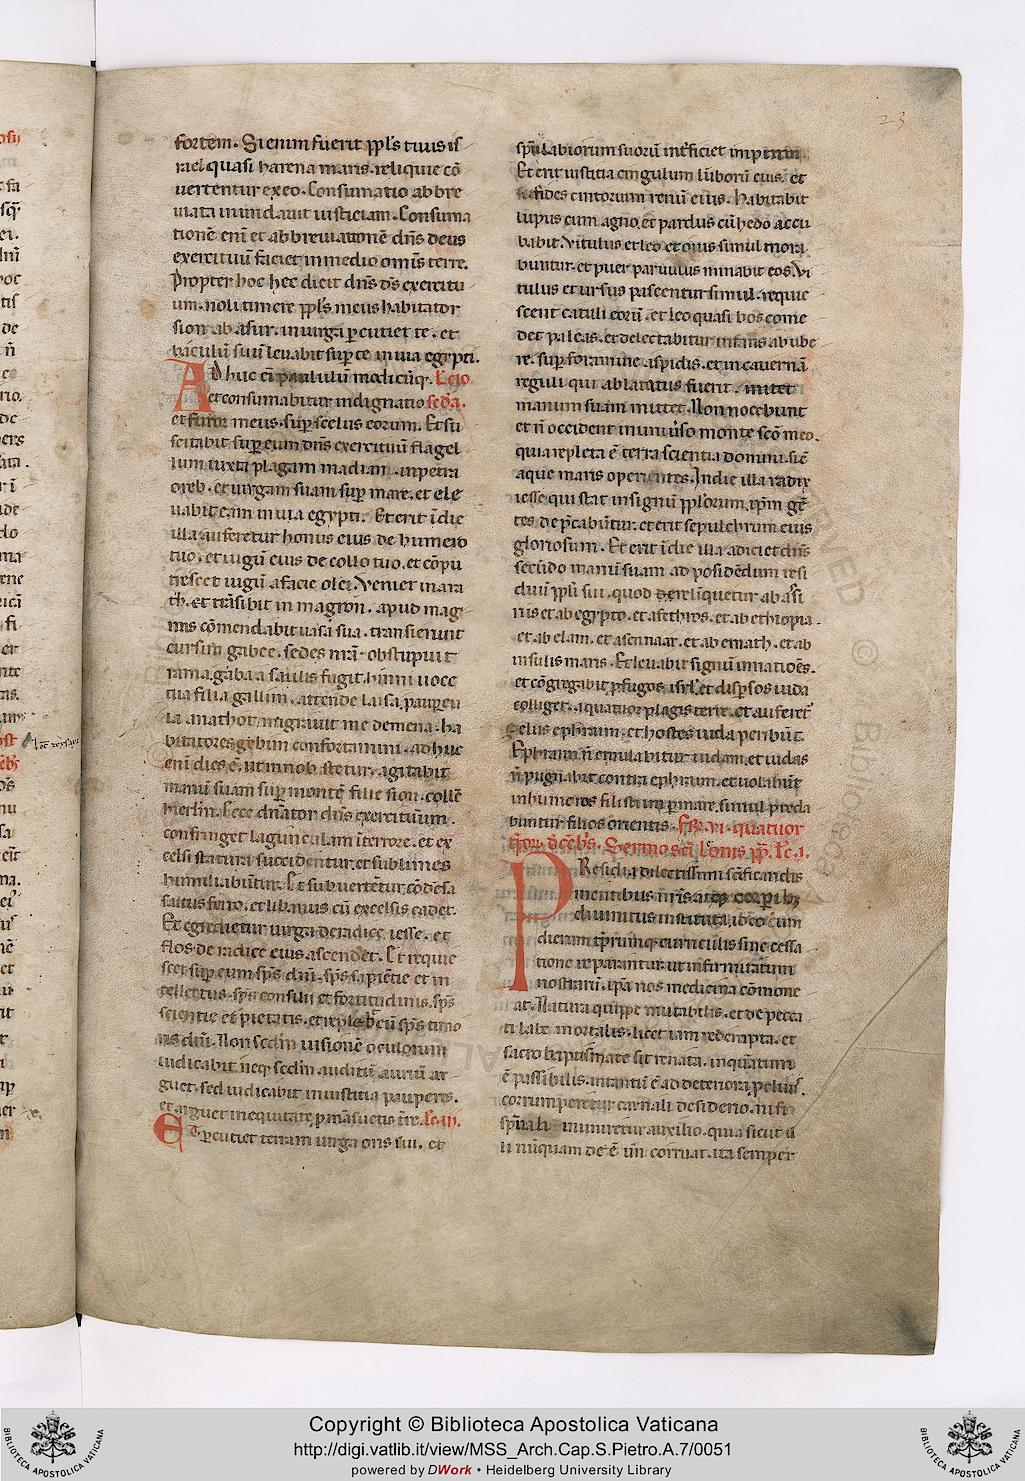 23
fortem. Si enim fuerit ppl̄s tuus is
rael quasi harena maris. reliquie cō
uertentur ex eo. Consumatio abbre
uiata inundauit iusticiam. Consuma
tionē enī et abbreuiationē dn̄s deus
exercituū faciet in medio om̄is terre.
Propter hoc hec dicit dn̄s ds̄ exercitu
um. noli timere ppl̄s meus habitator
sion ab asur. in uirga ꝑcutiet te. et
baculū suū leuabit suꝑ te in uia egypti.
Adhuc eī paululū modicūq;. Lc̄io
et consumabitur indignatio scd̄a.
et furor meus. suꝑ scelus eorum. Et su
scitabit suꝑ eum dn̄s exercituū flagel
lum iuxta plagam madian. in petra
oreb. et uirgam suam suꝑ mare. et ele
uabit eam in uia egypti. Et erit ī die
illa auferetur honus eius de humero
tuo. et iugū eius de collo tuo. et cōpu
trescet iugū a facie olei. Veniet in aia
th. et trāsibit in magron. apud mag
mis cōmendabit uasa sua. transierunt
cursim gabee. sedes nr̄a. obstupuit
rama. gabaa saulis fugit. hinni uoce
tua filia gallim. attende laisa. paupcu
la anathot. migrauit medemena. ha
bitatores gebim confortamini. adhuc
enī dies ē. ut in nob stetur. agitabit
manū suam suꝑ montē filie sion. collē
hierl̄m. Ecce dn̄ator dn̄s exercituum.
confringet lagunculam ī terrore. et ex
celsi statura succidentur. et sublimes
humiliabūtur. Et subuertētur cōdēsa
saltus ferro. et libanus cū excelsis cadet.
Et egredietur uirga de radice iesse. et
flos de radice eius ascendet. Et requie
scet suꝑ eum sps̄ dn̄i. sps̄ sapiētie et in
tellectus. sps̄ consilii et fortitudinis. sps̄
scientie et pietatis. et replebit eū sps̄ timo
ris dn̄i. Non sedm̄ uisionē oculorum
iudicabit neq; sedm̄ auditū auriū ar
guet. sed iudicabit in iustitia pauperes.
et arguet in equitate ꝑ māsuetis tr̄re. Lc̄. iii.
Et ꝑcutiet terram uirga oris sui. et
spū labiorum suorū int̄ficiet impium.
Et erit iustitia cingulum lūborū eius. et
fides cinctorium renū eius. Habitabit
lupus cum agno. et pardus cū hedo accu
babit. Vitulus et leo et ouis simul mora
buntur. et puer paruulus minabit eos. Vi
tulus et ursus pascentur simul. requie
scent catuli eorū. et leo quasi bos come
det paleas. et delectabitur infans ab ube
re. suꝑ foramine aspidis. et in cauernā
reguli qui ablatatus fuerit. mitet
manum suam mittet. Non nocebunt
et n̄ occident in uniūso monte scō meo.
quia repleta ē terra scientia domini. sic̄
aque maris operientes. In die illa radix
iesse qui stat in signū ppl̄orum. ip̄m gē
tes dep̄cabūtur. et erit sepulchrum eius
gloriosum. Et erit ī die illa adiciet dn̄s
secūdo manū suam ad posidēdum resi
duū ppl̄i sui. quod derelīquetur ab assi
riis et ab egypto. et a fethros. et ab ethiopia.
et ab elam. et a sennaar. et ab emath. et ab
insulis maris. Et leuabit signū in natiōes.
et cōgregabit ꝓfugos isrl̄. et disꝑsos iuda
colliget. a quatuor plagis terre. et auferet
zelus ephraim. et hostes iuda peribūt.
Ephraim n̄ emulabitur iudam. et iudas
n̄ pugnabit contra ephraim. et uolabūt
in humeros filistiim ꝑ mare. simul preda
buntur filios orientis. Fr̄. vi. quatuor
tp̄oꝝ. dēcēb̄s. Sermo scī leonis pp̄. Lc̄. i.
Presidia dilectissimi sc̄ificandis
mentibus nr̄is atq; corꝑibꝫ
diuinitus instituta. ideo cum
dierum tp̄rumq; curriculis sine cessa
tione reparantur. ut infirmitatum
nostrarū. ipa nos medicina cōmone
at. Natura quippe mutabilis. et de pecca
ti labe mortalis. licet iam redempta. et
sacro baptismate sit renata. inquātum
ē passibilis. intantū ē ad deteriora ꝓcliuis.
corrumperetur carnali desiderio. nisi
spūali muniretur auxilio. quia sicut il
li nūquam deē un̄ corruat. ita semper
Copyright © Biblioteca Apostolica Vaticana
http://digi.vatlib.it/view/MSS_Arch.Cap.S.Pietro.A.7/0051
powered by DWork • Heidelberg University Library
BIBLIOTECA APOSTOLICA VATICANA
BIBLIOTECA APOSTOLICA VATICANA